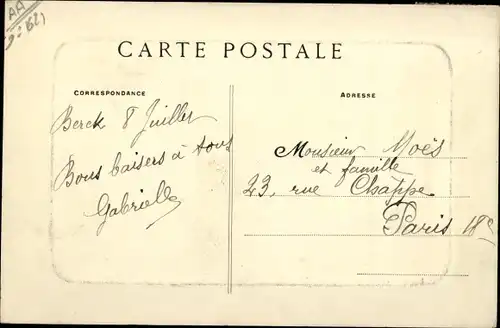 AA
CARTE POSTALE
CORRESPONDANCE
ADRESSE
Berck 8 Juillet
Bons baisers à tous
Gabrielle
Monsieur Moës
et famille
23, rue Chappe
Paris 18e